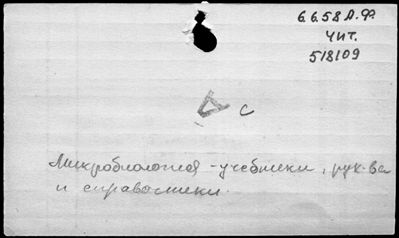 6.6.58 А.Ф.
Чит.
518109
А с
Микробиология - учебники, рук-ва
и справочники.